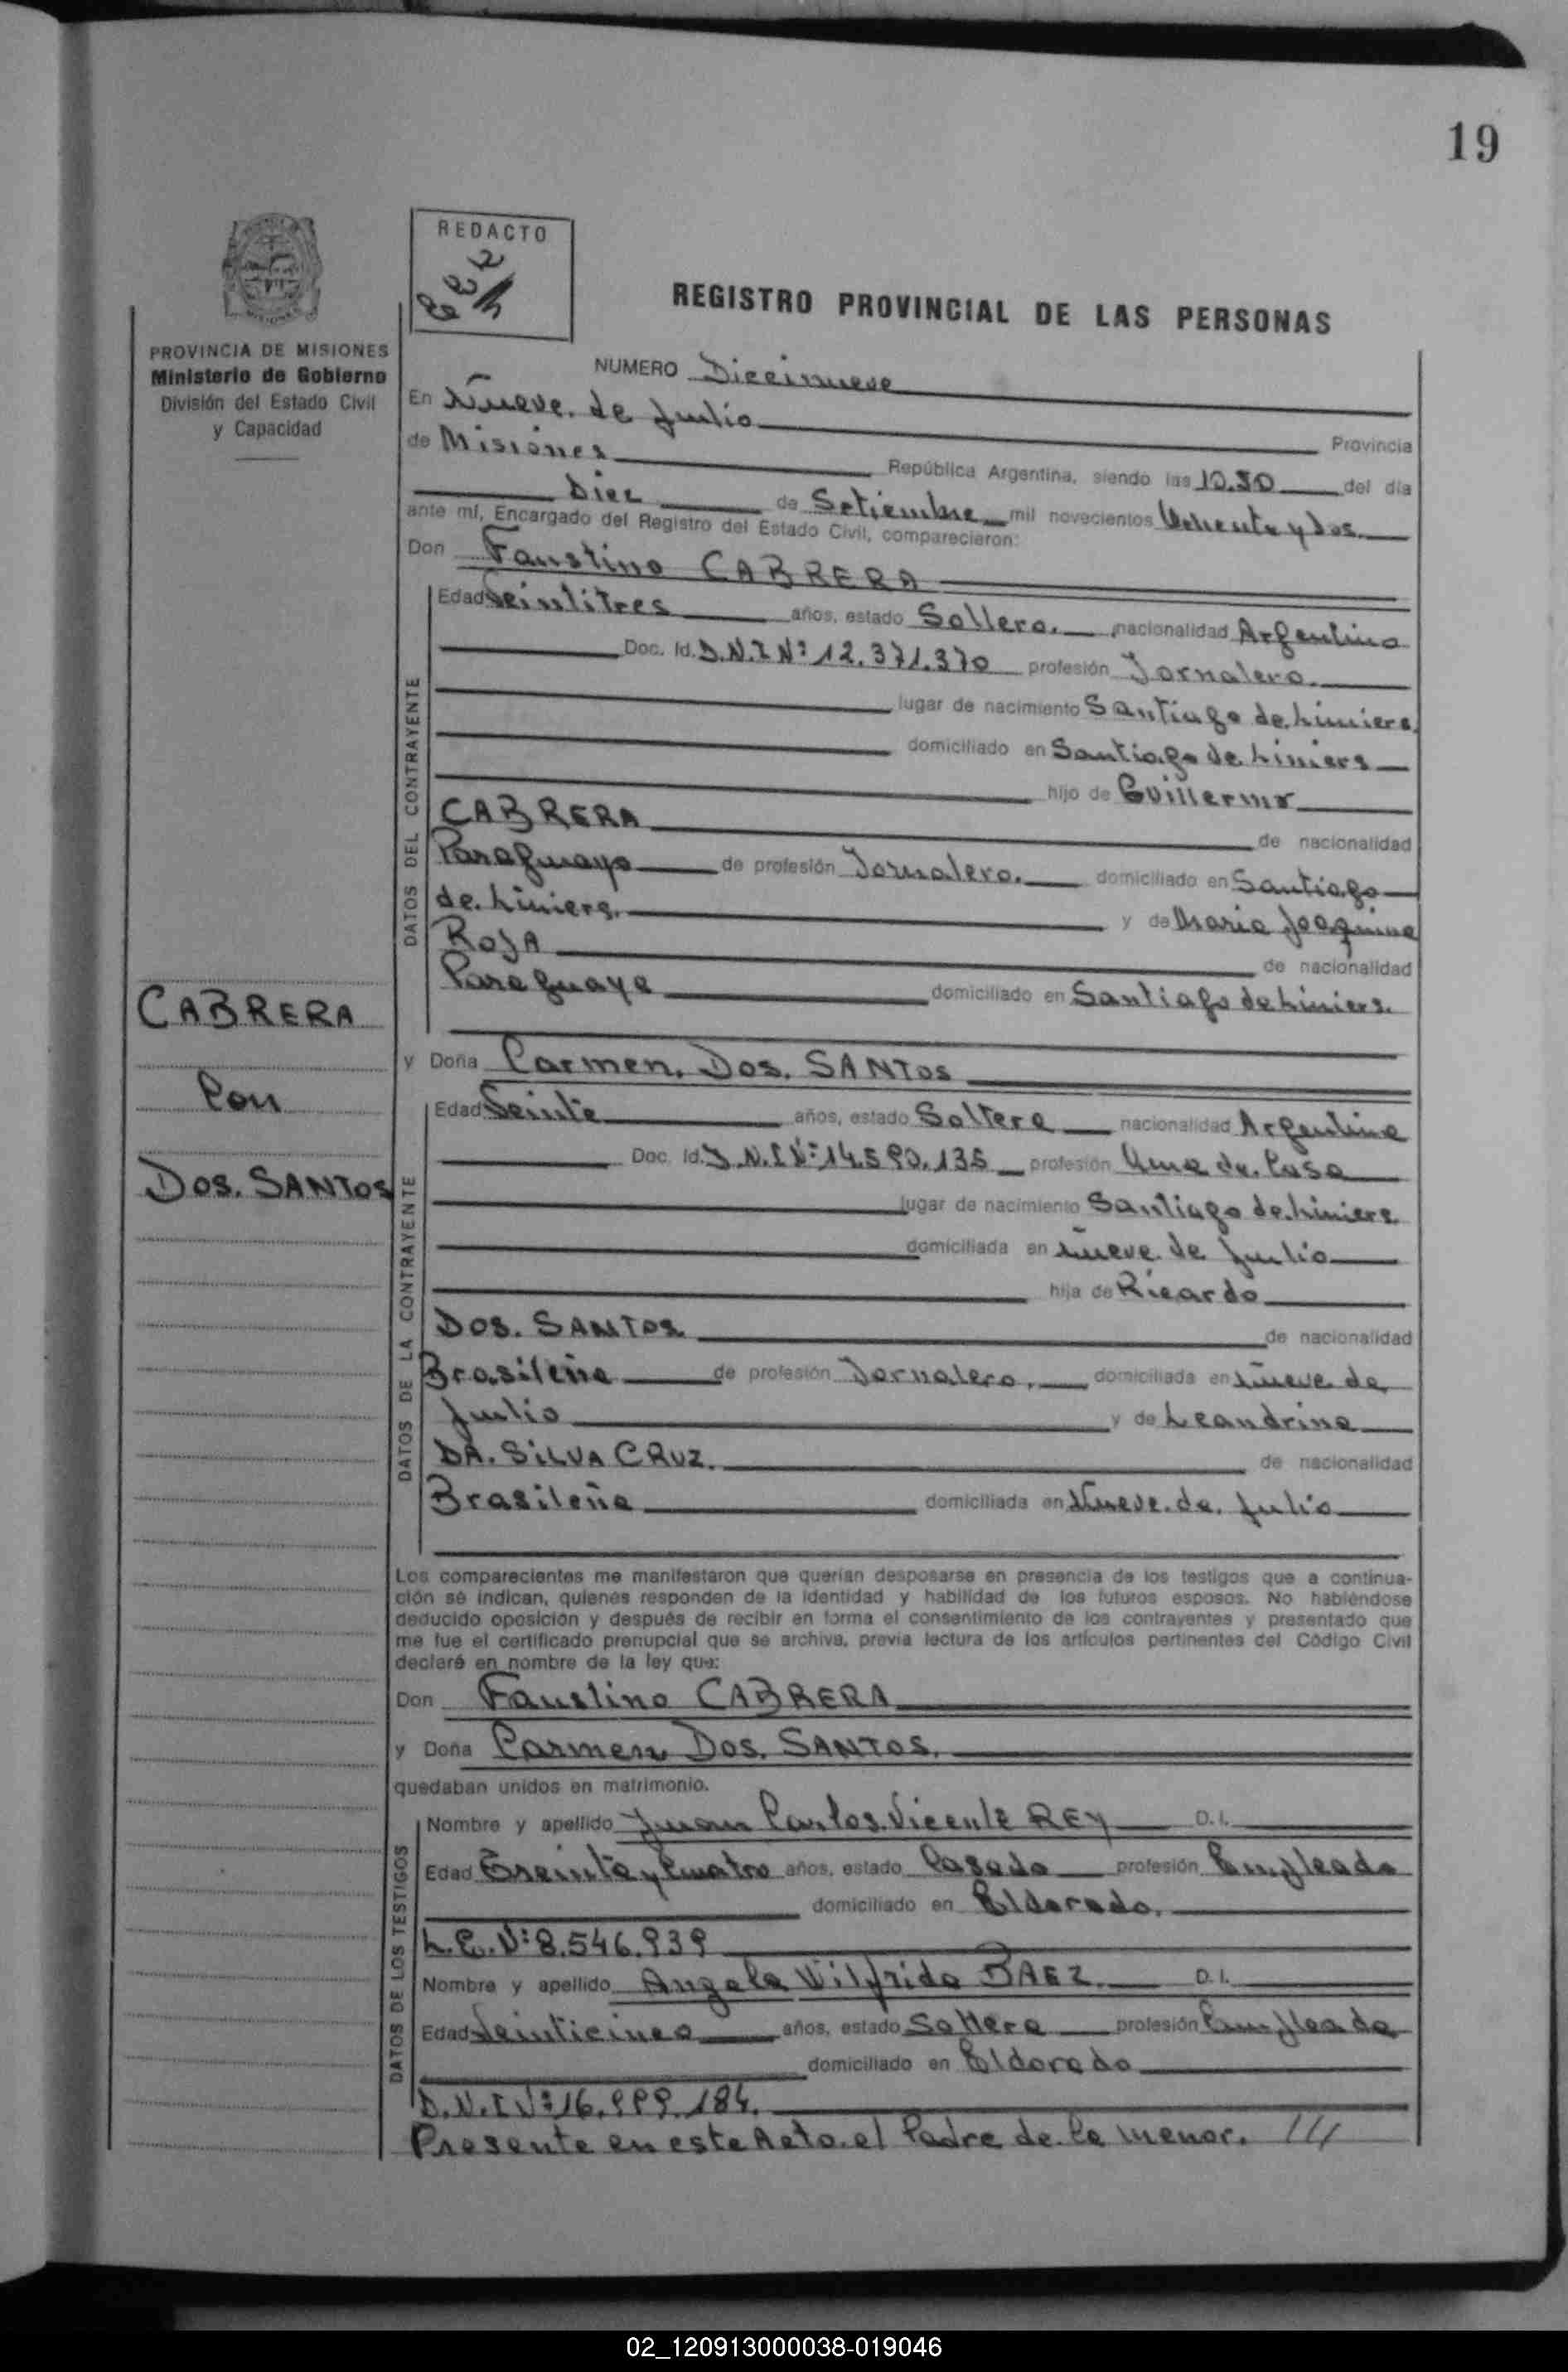 19
REDACTO
REGISTRO PROVINCIAL DE LAS PERSONAS
PROVINCIA DE MISIONES
Ministerio de Gobierno
División del Estado Civil
y Capacidad
NUMERO Diecinueve
En Nueve de Julio Provincia
de Misiones República Argentina, siendo las 10.30 del día
Diez de Setiembre mil novecientos Ochenta y Dos.
ante mí, Encargado del Registro del Estado Civil, comparecieron:
Don Faustino CABRERA
DATOS DEL CONTRAYENTE
Edad Veintitres años, estado Soltero. nacionalidad Argentino
Doc. Id. D.N.I Nº 12.371.370 profesión Jornalero.
lugar de nacimiento Santiago de Liniers.
domiciliado en Santiago de Liniers
hijo de Guillermo
CABRERA de nacionalidad
Paraguayo de profesión Jornalero. domiciliado en Santiago
de Liniers. y de Maria Joaquina
ROJA de nacionalidad
Paraguaya domiciliado en Santiago de Liniers.
CABRERA
Con
DOS. SANTOS
y Doña Carmen. Dos. SANTOS
DATOS DE LA CONTRAYENTE
Edad Veinte años, estado Soltera nacionalidad Argentina
Doc. Id. D.N.I Nº 14.590.135 profesión Ama de Casa
lugar de nacimiento Santiago de Liniers.
domiciliada en Nueve de Julio
hija de Ricardo
DOS. SANTOS de nacionalidad
Brasileña de profesión Jornalero. domiciliada en Nueve de
Julio y de Leandrina
DA. SILVA CRUZ. de nacionalidad
Brasileña domiciliada en Nueve de Julio
Los comparecientes me manifestaron que querían desposarse en presencia de los testigos que a continua-
ción se indican, quienes responden de la identidad y habilidad de los futuros esposos. No habiéndose
deducido oposición y después de recibir en forma el consentimiento de los contrayentes y presentado que
me fue el certificado prenupcial que se archiva, previa lectura de los artículos pertinentes del Código Civil
declaré en nombre de la ley que:
Don Faustino CABRERA
y Doña Carmen Dos. SANTOS.
quedaban unidos en matrimonio.
DATOS DE LOS TESTIGOS
Nombre y apellido Juan Carlos Vicente REY D.I.
Edad Treinta y Cuatro años, estado Casado profesión Empleado
domiciliado en Eldorado.
L.E. Nº 8.546.939
Nombre y apellido Angela Vilfrida BAEZ. D.I.
Edad Veinticinco años, estado Soltera profesión Empleada
domiciliado en Eldorado
D.N.I Nº 16.999.184.
Presente en este Acto. el Padre de la menor. ///
02_120913000038-019046